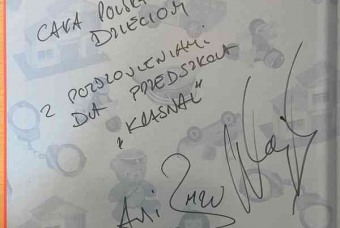 CAŁA POLSKA
DZIECIOM
Z POZDROWIENIAMI
DLA PRZEDSZKOLA
„KRASNAL”